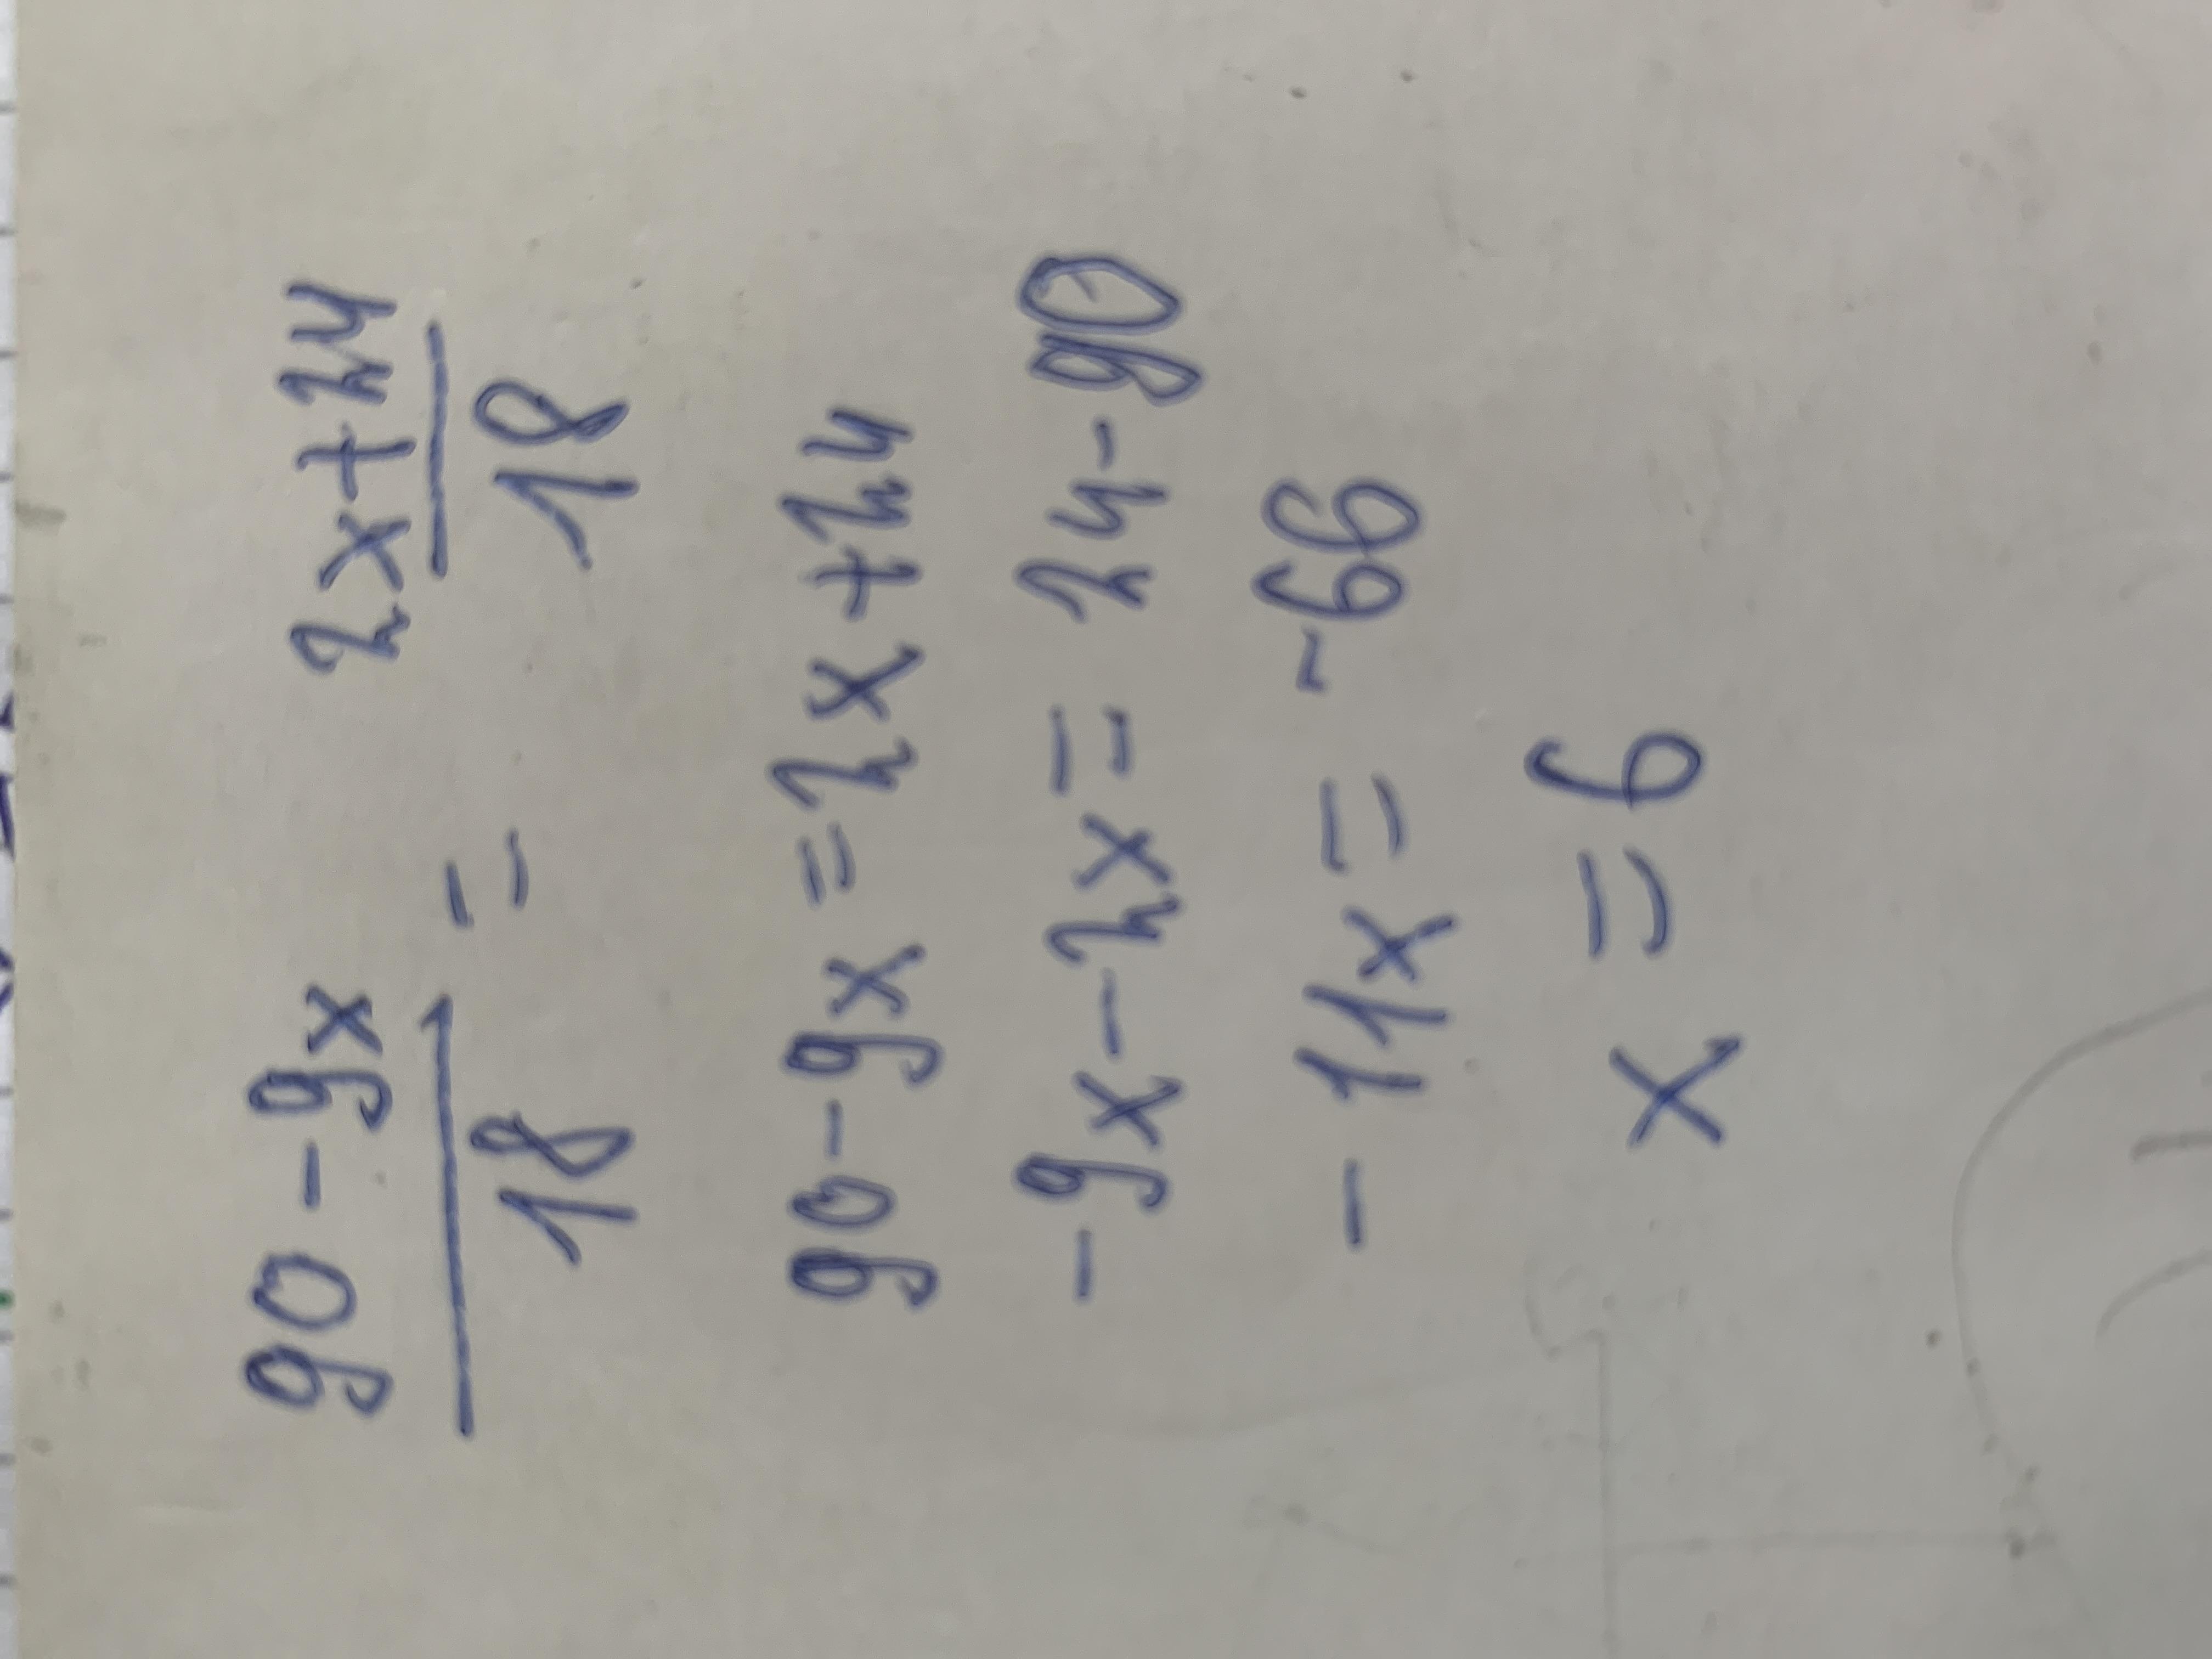 90 - 9x = 2x + 24
18 18
90 - 9x = 2x + 24
- 9x - 2x = 24 - 90
- 11x = -66
x = 6